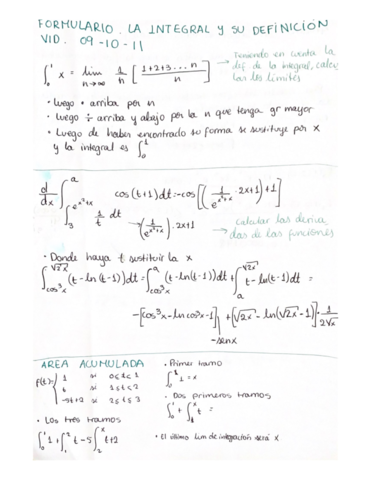 FORMULARIO. LA INTEGRAL Y SU DEFINICIÓN
VID. 09-10-11
∫₀¹ x = lim n→∞ 1/n [ (1+2+3... n)/n ] → Teniendo en cuenta la
def de la integral, calcu
lar los límites
• Luego • arriba por n
• Luego ÷ arriba y abajo por la n que tenga gr mayor
• Luego de haber encontrado su forma se sustituye por x
y la integral es ∫₀¹
d/dx ∫ₐ cos(t+1)dt = -cos[( 1/(e^(x²+x)) · 2x+1)+1]
∫₃^(e^(x²+x)) 1/t dt → (1/(e^(x²+x))) · 2x+1 → calcular las deriva
das de las funciones
• Donde haya t sustituir la x
∫_(cos³x)^(√2x) (t-ln(t-1))dt = ∫_(cos³x)^a (t-ln(t-1))dt + ∫_a^(√2x) t-ln(t-1)dt =
-[cos³x-ln cos³x-1] · -senx + [√2x - ln(√2x - 1)] · 1/(2√x)
AREA ACUMULADA
f(t): { 1 si 0≤t≤1
t si 1≤t≤2
-5t+2 si 2≤t≤3
• Primer tramo
∫₀¹ 1 = x
• Dos primeros tramos
∫₀¹ + ∫₁ˣ t =
• Los tres tramos
∫₀¹ 1 + ∫₁² t - 5 ∫₂ˣ t+2
• El último lim de integración será x